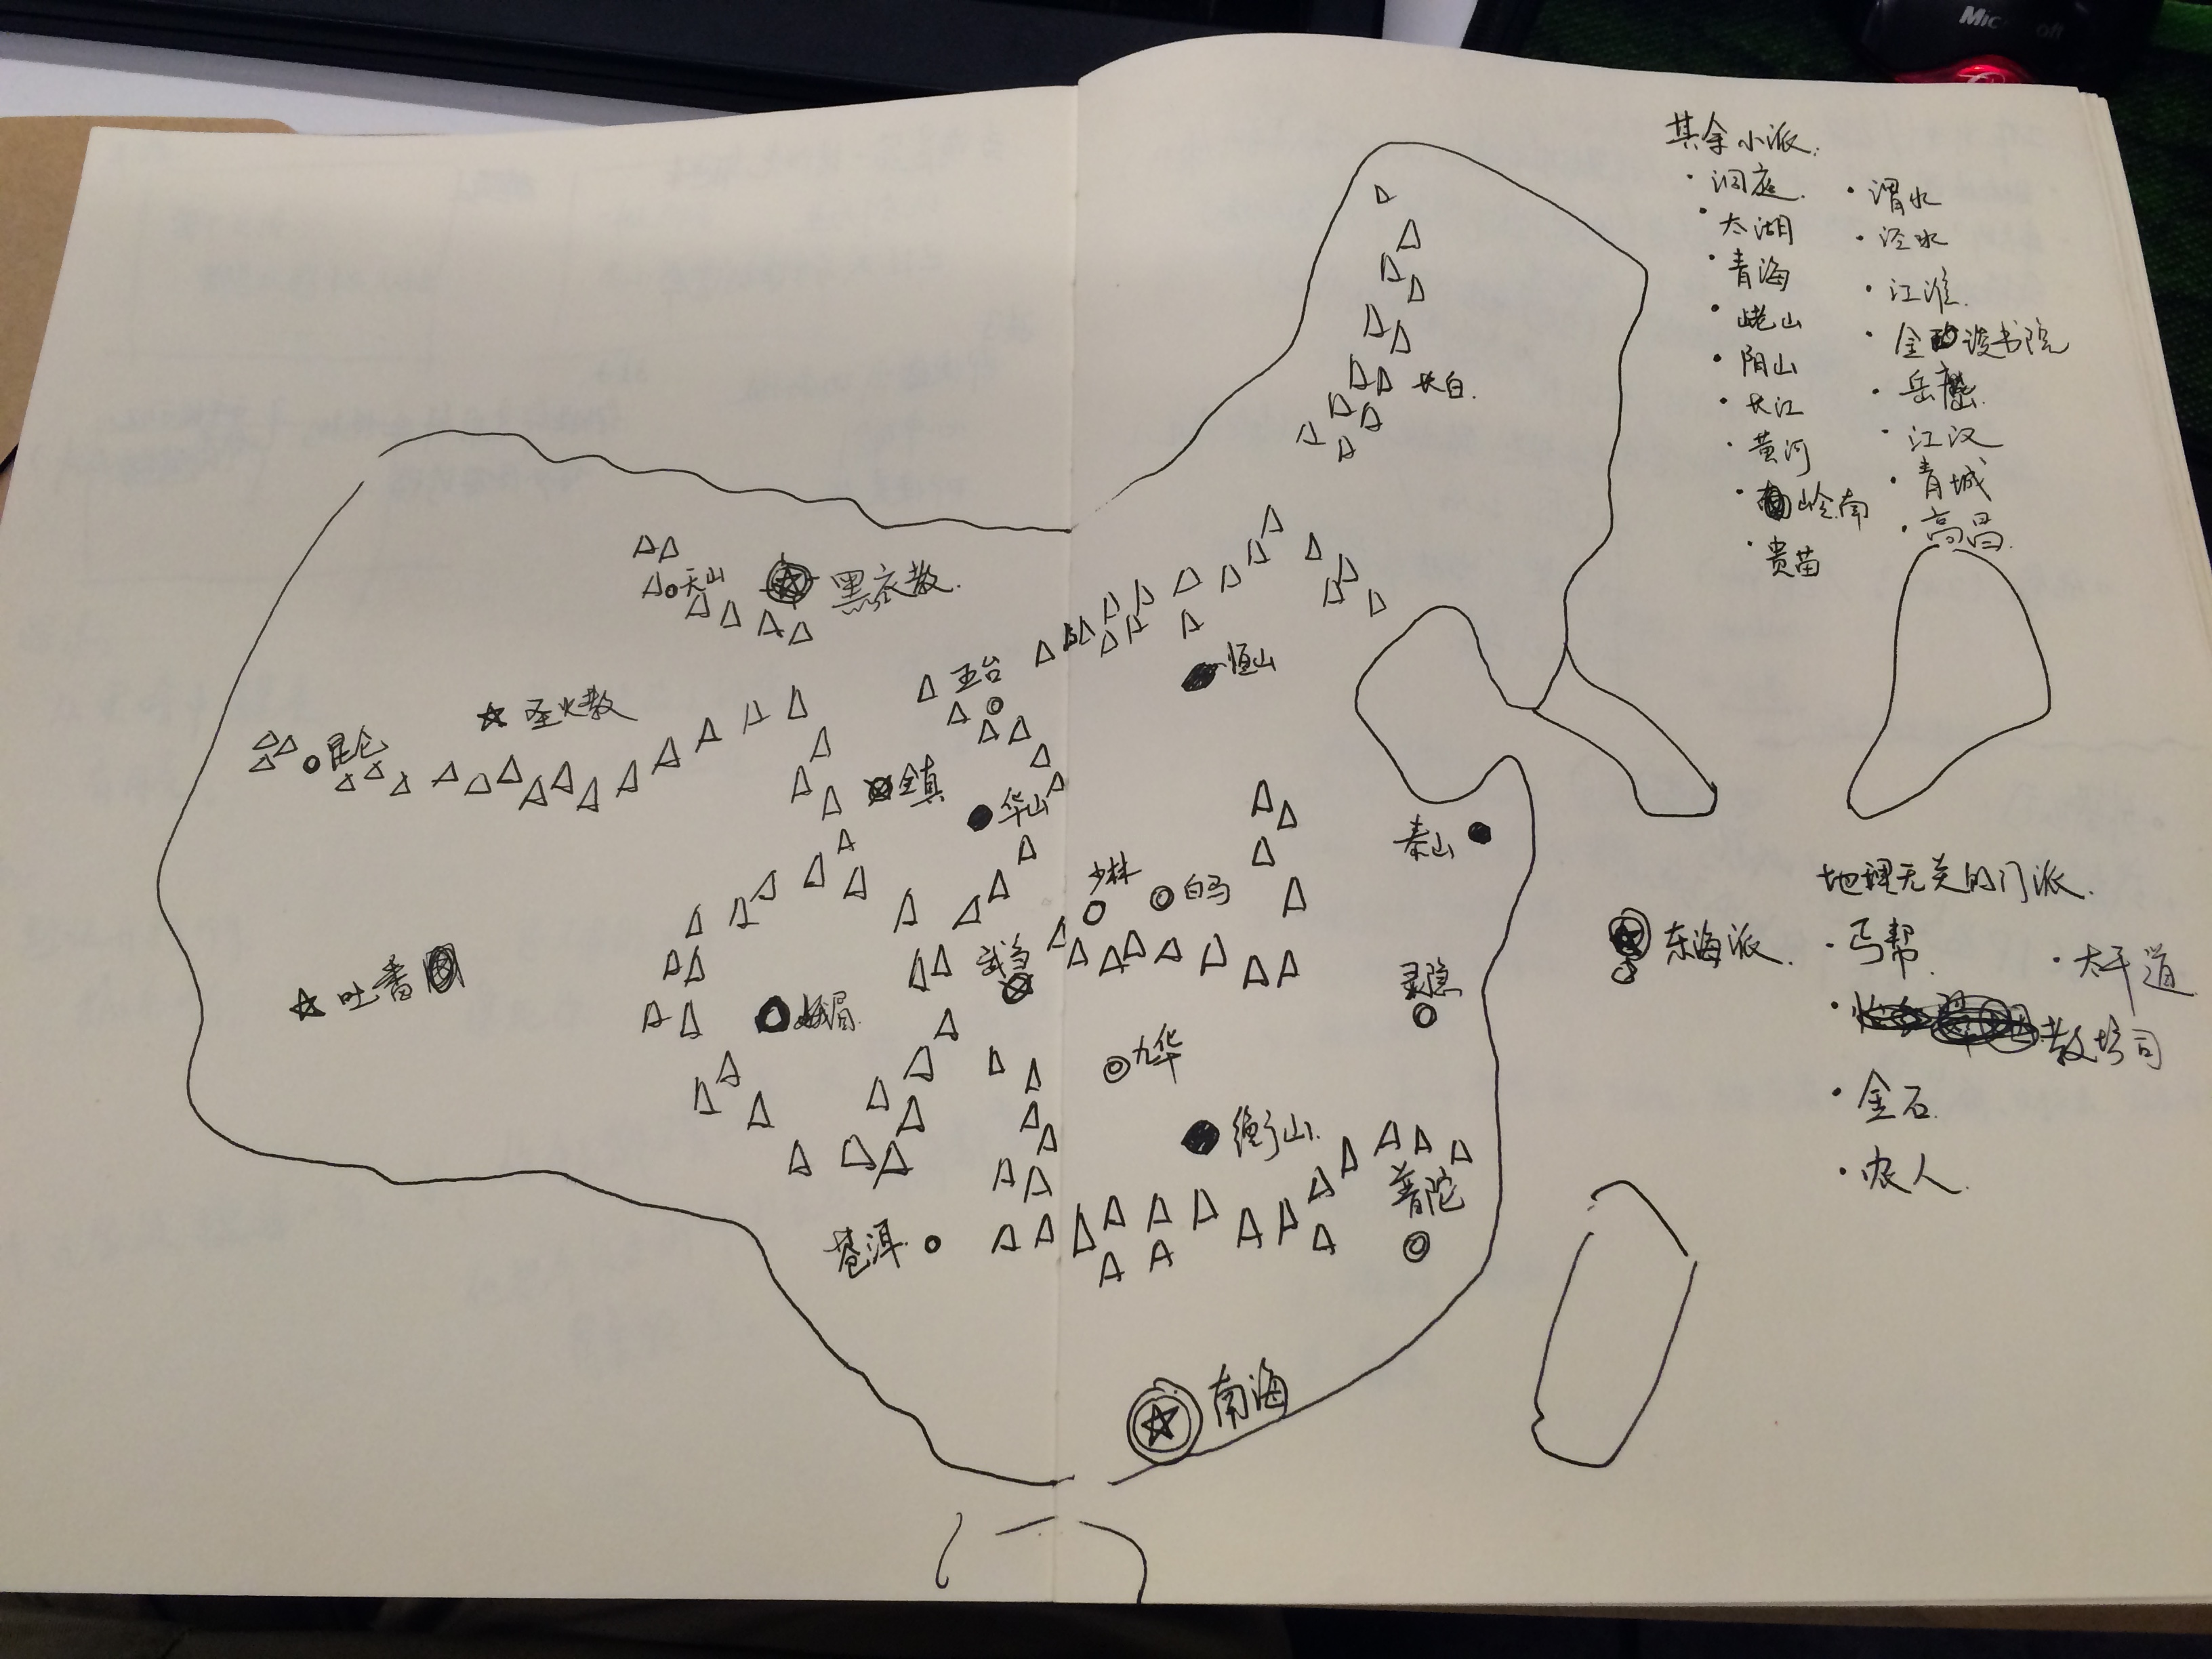 Microsoft
其余小派:
· 洞庭
· 太湖
· 青海
· 崂山
· 阳山
· 长江
· 黄河
· 岭南
· 贵苗
· 渭水
· 泾水
· 江淮
· 金陵书院
· 岳麓
· 江汉
· 青城
· 高昌
长白
天山
黑衣教
五台
恒山
圣火教
昆仑
全真
华山
泰山
少林
白马
武当
吐蕃
峨眉
灵隐
东海派
九华
衡山
普陀
苍洱
南海
地理无关的门派
· 丐帮
· 太平道
· 教坊司
· 金石
· 农人